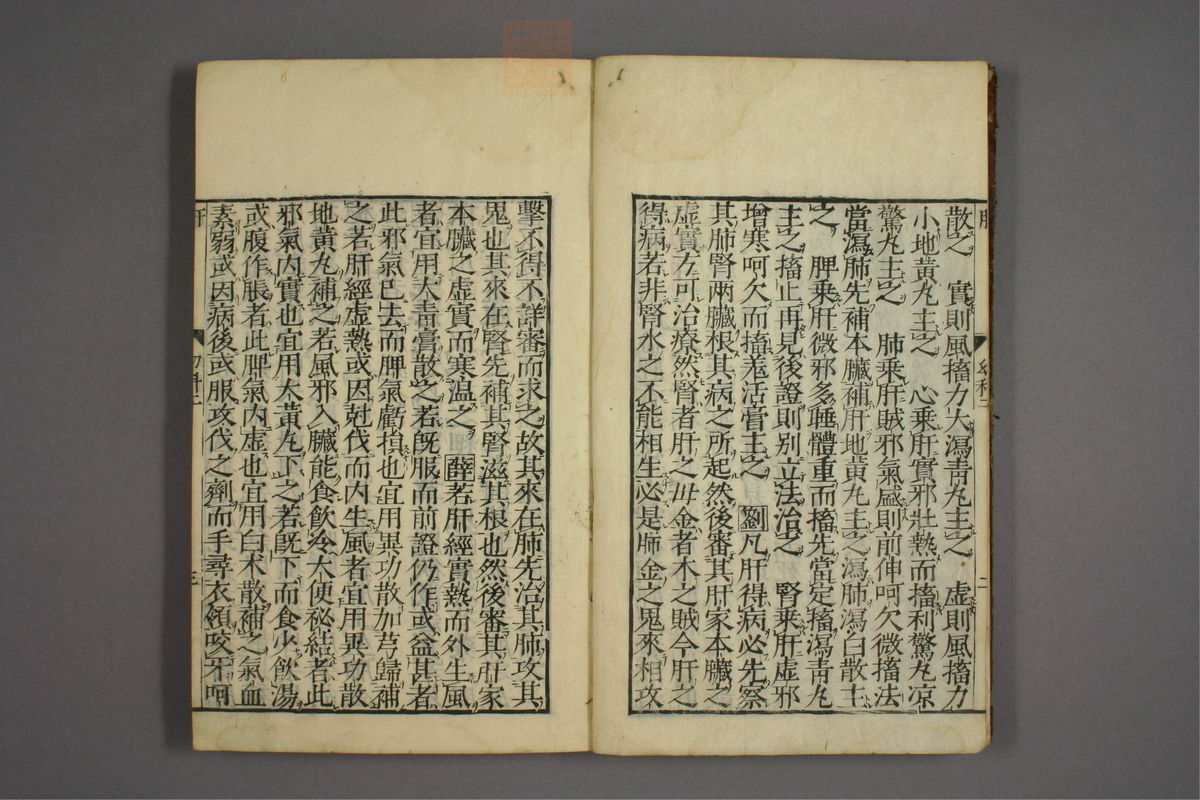 散之　實則風搐力大瀉青丸主之　虚則風搐力
小地黄丸主之　心乗肝實邪壯熱而搐利驚丸凉
驚丸主之　肺乗肝賊邪氣盛則前伸呵欠微搐法
當瀉肺先補本臟補肝地黄丸主之瀉肺瀉白散主
之　脾乗肝微邪多唾體重而搐先當定搐瀉青丸
主之搐止再見後證則別立法治之　腎乗肝虚邪
增寒呵欠而搐羗活膏主之　劉凡肝得病必先察
其肺腎兩臟根其病之所起然後審其肝家本臟之
虚實方可治療然腎者肝之母金者木之賊今肝之
得病若非腎水之不能相生必是肺金之鬼來相攻
擊不得不詳審而求之故其來在肺先治其肺攻其
鬼也其來在腎先補其腎滋其根也然後審其肝家
本臟之虚實而寒温之　薛若肝經實熱而外生風
者宜用大青膏散之若旣服而前證仍作或益甚者
此邪氣已去而脾氣虧損也宜用異功散加芎歸補
之若肝經虚熱或因尅伐而内生風者宜用異功散
地黄丸補之若風邪入臟能食飲冷大便秘結者此
邪氣内實也宜用大黄丸下之若旣下而食少飲湯
或腹作脹者此脾氣内虚也宜用白术散補之氣血
素弱或因病後或服攻伐之劑而手尋衣領咬牙呵